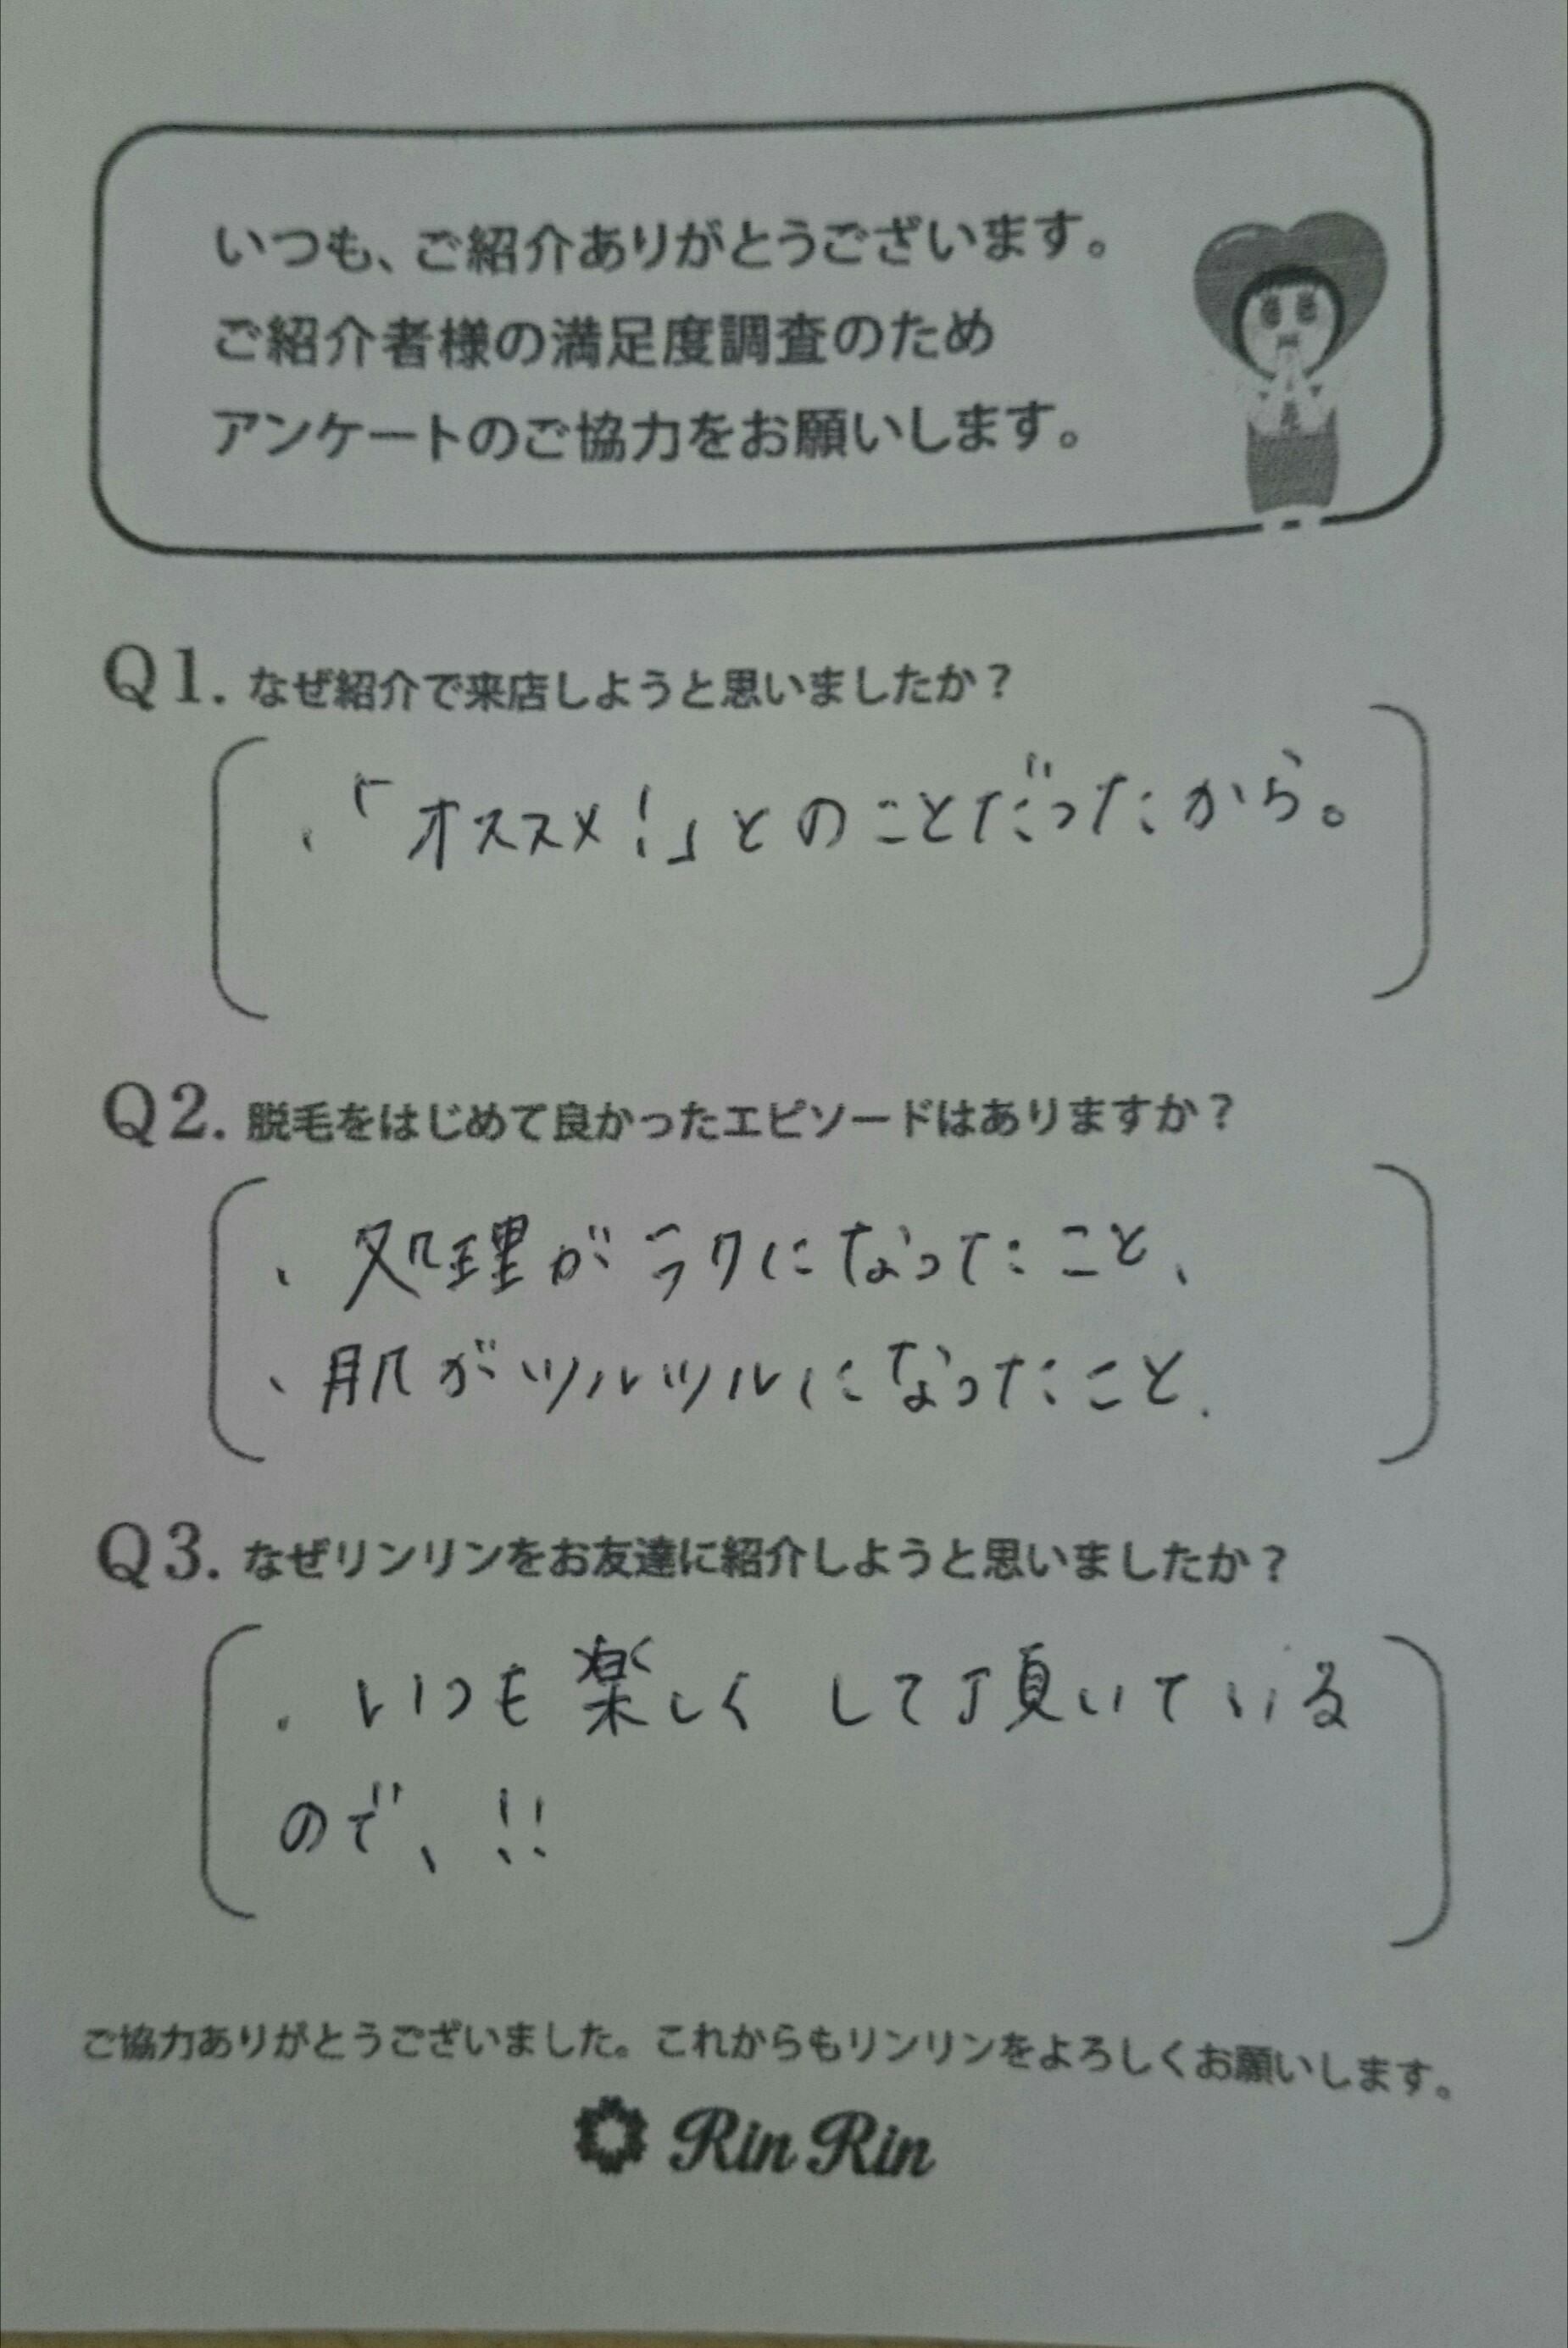 いつも、ご紹介ありがとうございます。
ご紹介者様の満足度調査のため
アンケートのご協力をお願いします。
Q1. なぜ紹介で来店しようと思いましたか？
・「オススメ！」とのことだったから。
Q2. 脱毛をはじめて良かったエピソードはありますか？
・処理がラクになったこと、
・肌がツルツルになったこと.
Q3. なぜリンリンをお友達に紹介しようと思いましたか？
・いつも楽しくして頂いている
ので、!!
ご協力ありがとうございました。これからもリンリンをよろしくお願いします。
Rin Rin